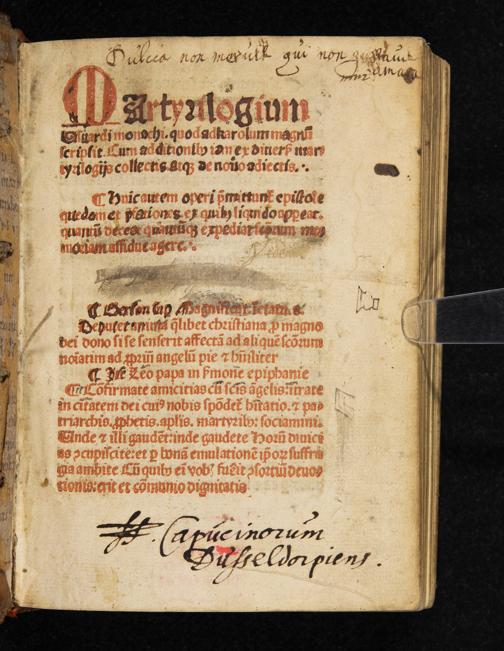 Dulcia non meruit qui non gustavit
amara
Martyrilogium
Usuardi monachi. quod ad karolum magnū
scripsit. Cum additionibꝰ tam ex diuersꝭ mar
tyrilogijs collectis atqꝫ de nouo adiectis.
¶ Huic autem operi p̄mittunt᷑ epistole
quedam et ꝑfationes ex quibꝰ liquido appear.
quantū deceat sctōrum me
moriam assidue agere.
¶ Gerson sup Magnificat
Deputet anima q̄libet christiana ꝓ magno
dei dono si se senserit affectā ad aliquē scōrum
noīatim ad ꝓpriū angelū pie ⁊ hūiliter
¶ Itē Leo papa in s̄mone epiphanie
¶ Cōfirmate amicitias cū scīs āgelis: ītrate
in ciuitatem dei cuiꝰ nobis spōdet᷑ hītatio. ⁊ pa
triarchis. ꝓphetis. aplīs. martyribꝰ: sociamini.
Unde ⁊ illi gaudēt: inde gaudete Horū diuici
as ꝯcupiscite: et ꝑ bonā emulationē ip̄orū suffra
gia ambite Cū quibꝰ eī vobꝭ fuēit ꝯsortiū deuo
tionis: erit et cōmunio dignitatis
Capucinorum
Dusseldorpiens.